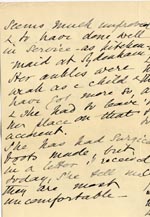 seems much improved
& to have done well
in service - as kitchen
maid at Sydenham
Her ankles were
weak as a child &
have got more so, and
& she had to leave
her place on that
account.
She has had surgical
boots made but
in a letter I received
today, she tells me
They are most
uncomfortable -